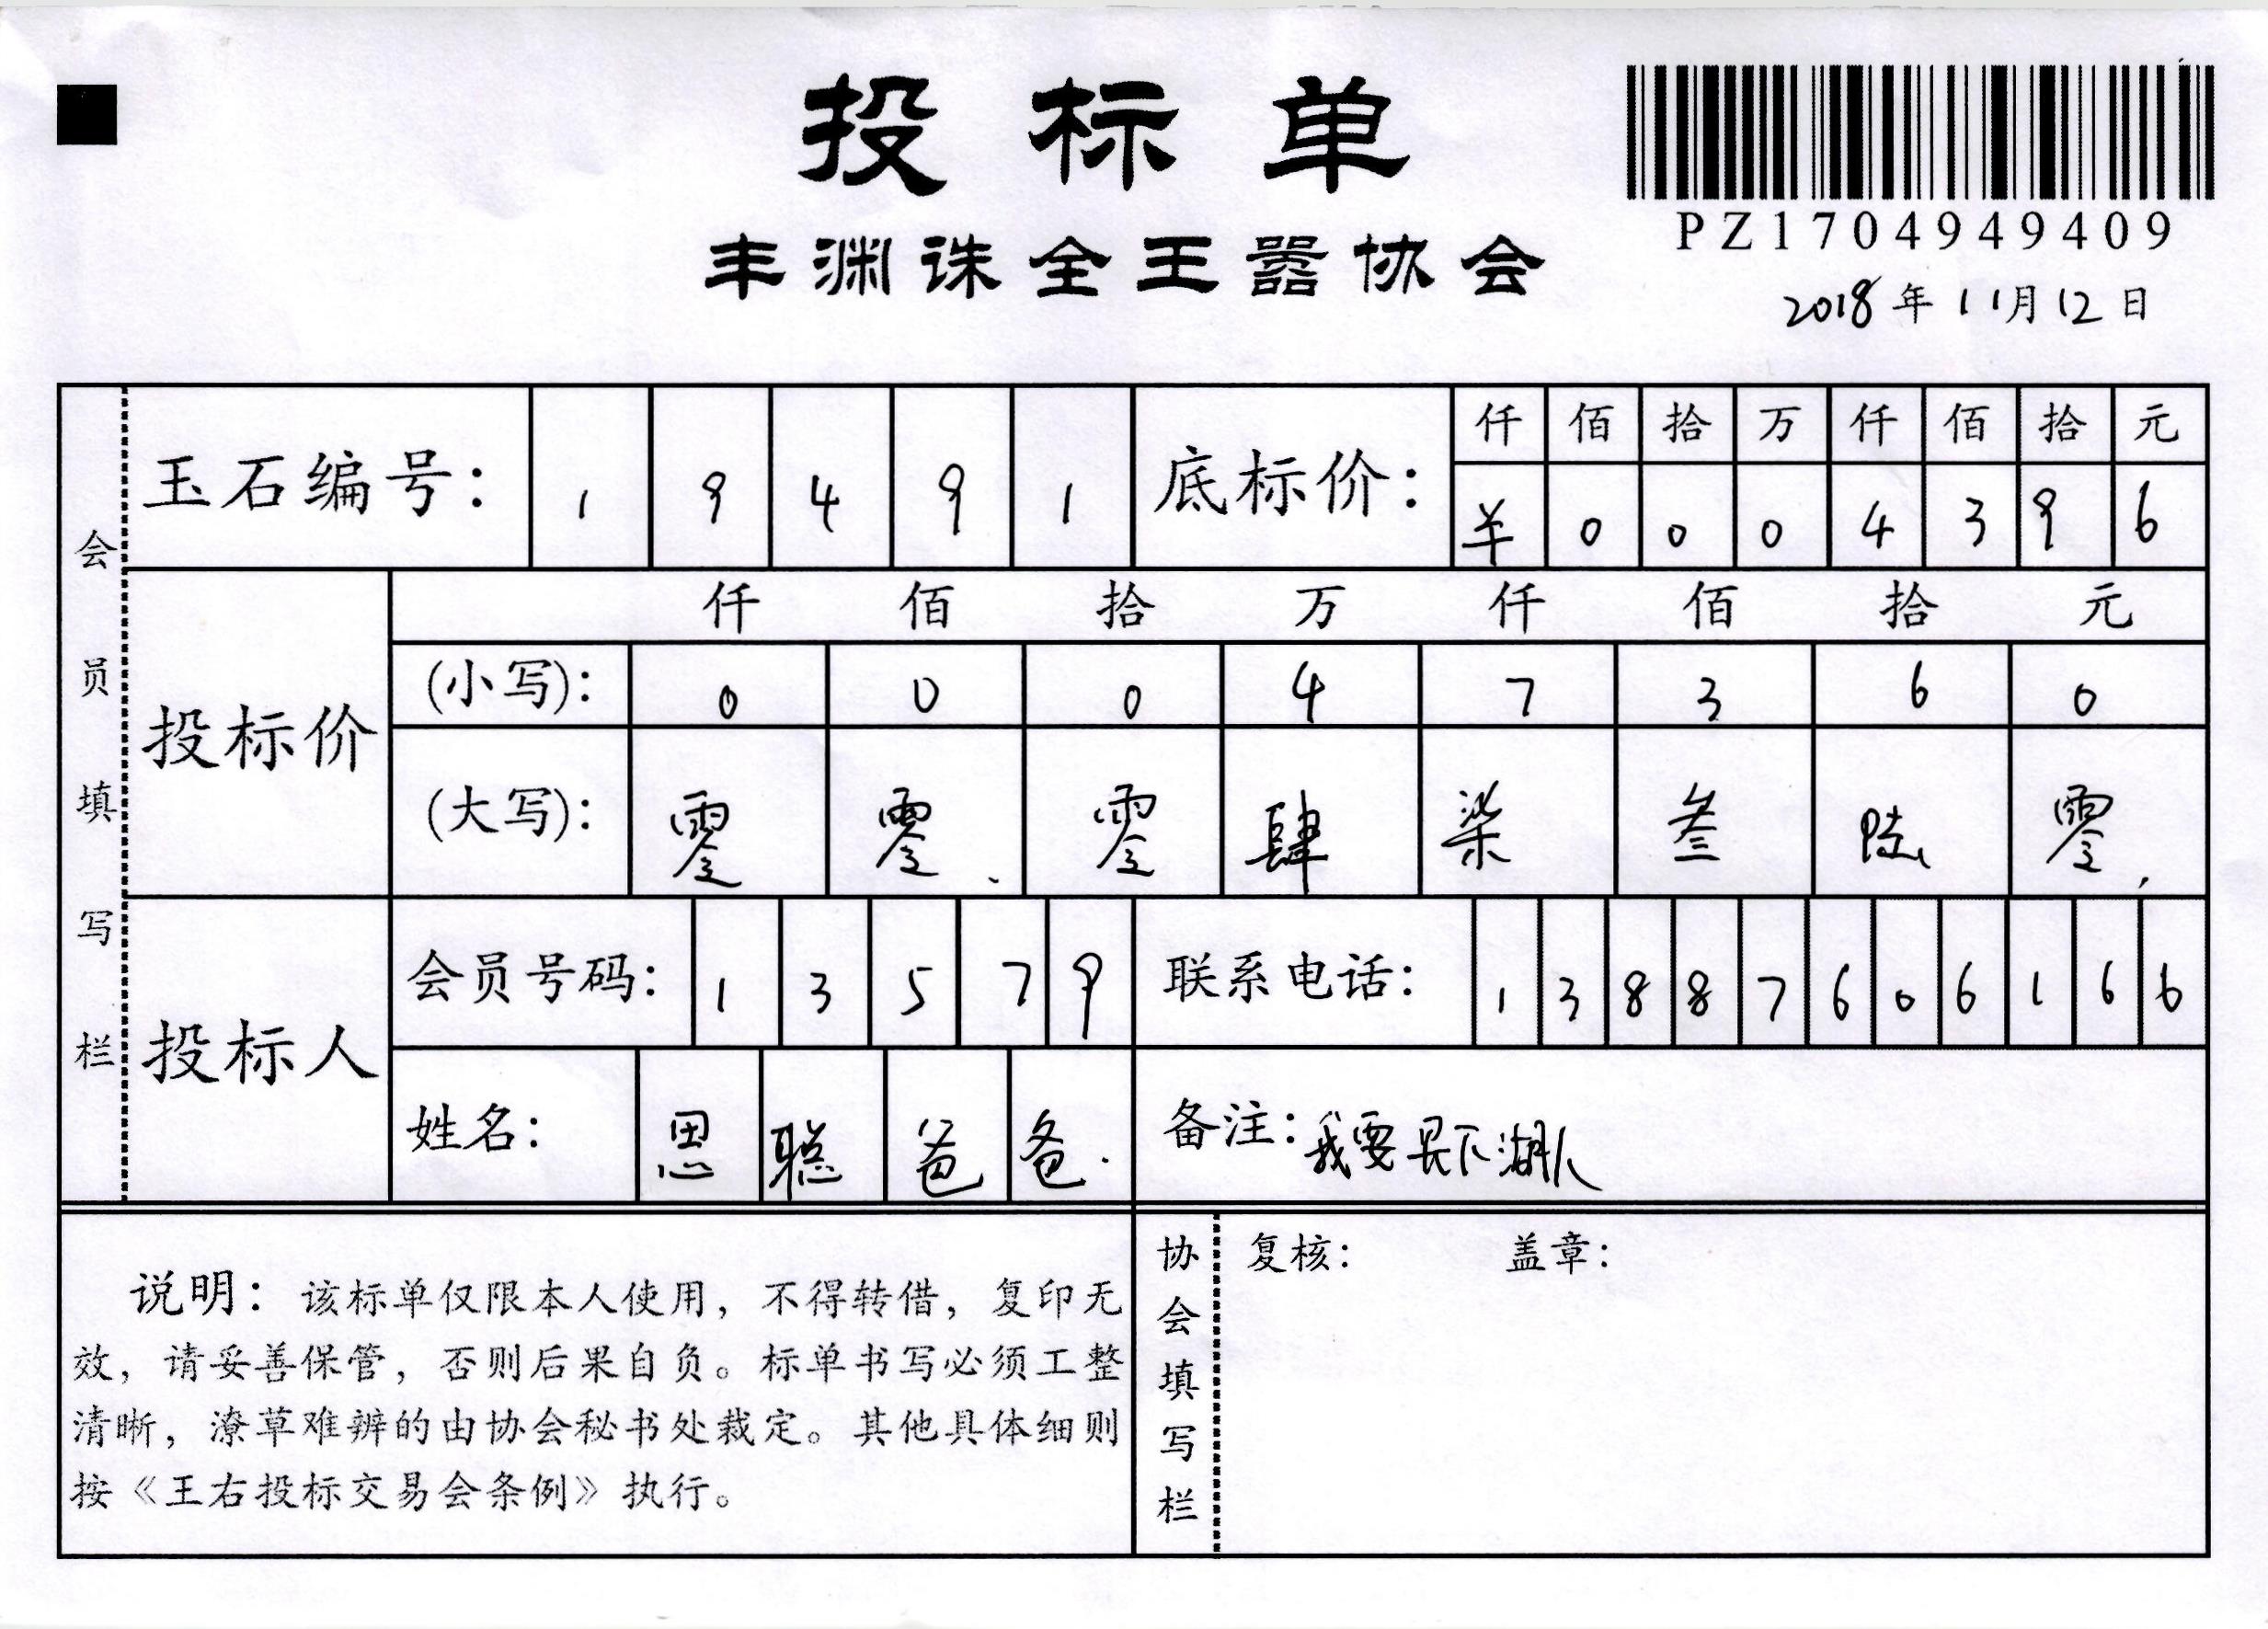 投标单
丰渊诛全王嚣协会
PZ1704949409
2018年11月12日
会员填写栏
玉石编号: 1 9 4 9 1
底标价: 仟 佰 拾 万 仟 佰 拾 元
羊 0 0 0 4 3 9 6
投标价
仟 佰 拾 万 仟 佰 拾 元
(小写): 0 0 0 4 7 3 6 0
(大写): 零 零 零 肆 柒 叁 陆 零
投标人
会员号码: 1 3 5 7 9
联系电话: 1 3 8 8 7 6 0 6 1 6 6
姓名: 思 聪 爸 爸
备注: 我要买下湖人
说明: 该标单仅限本人使用, 不得转借, 复印无
效, 请妥善保管, 否则后果自负。标单书写必须工整
清晰, 潦草难辨的由协会秘书处裁定。其他具体细则
按《王右投标交易会条例》执行。
协会填写栏
复核: 盖章: